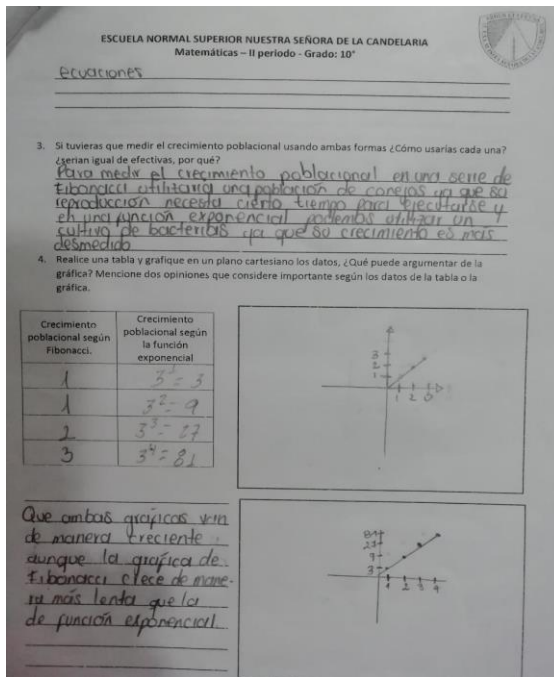 ESCUELA NORMAL SUPERIOR NUESTRA SEÑORA DE LA CANDELARIA
Matemáticas – II periodo - Grado: 10°
ecuaciones
3. Si tuvieras que medir el crecimiento poblacional usando ambas formas ¿Cómo usarías cada una?
¿serian igual de efectivas, por qué?
Para medir el crecimiento poblacional en una serie de
fibonacci utilizaria una población de conejos ya que su
reproducción necesita cierto tiempo para ejecutarse y
en una función exponencial podemos utilizar un
cultivo de bacterias ya que su crecimiento es mas
desmedido
4. Realice una tabla y grafique en un plano cartesiano los datos, ¿Qué puede argumentar de la
gráfica? Mencione dos opiniones que considere importante según los datos de la tabla o la
gráfica.
Crecimiento
poblacional según
Fibonacci.
Crecimiento
poblacional según
la función
exponencial
1
3¹ = 3
1
3² = 9
2
3³ = 27
3
3⁴ = 81
3
2
1
1 2 3
Que ambas graficas van
de manera creciente
aunque la grafica de
fibonacci crece de mane-
ra más lenta que la
de función exponencial.
81
27
9
3
1 2 3 4